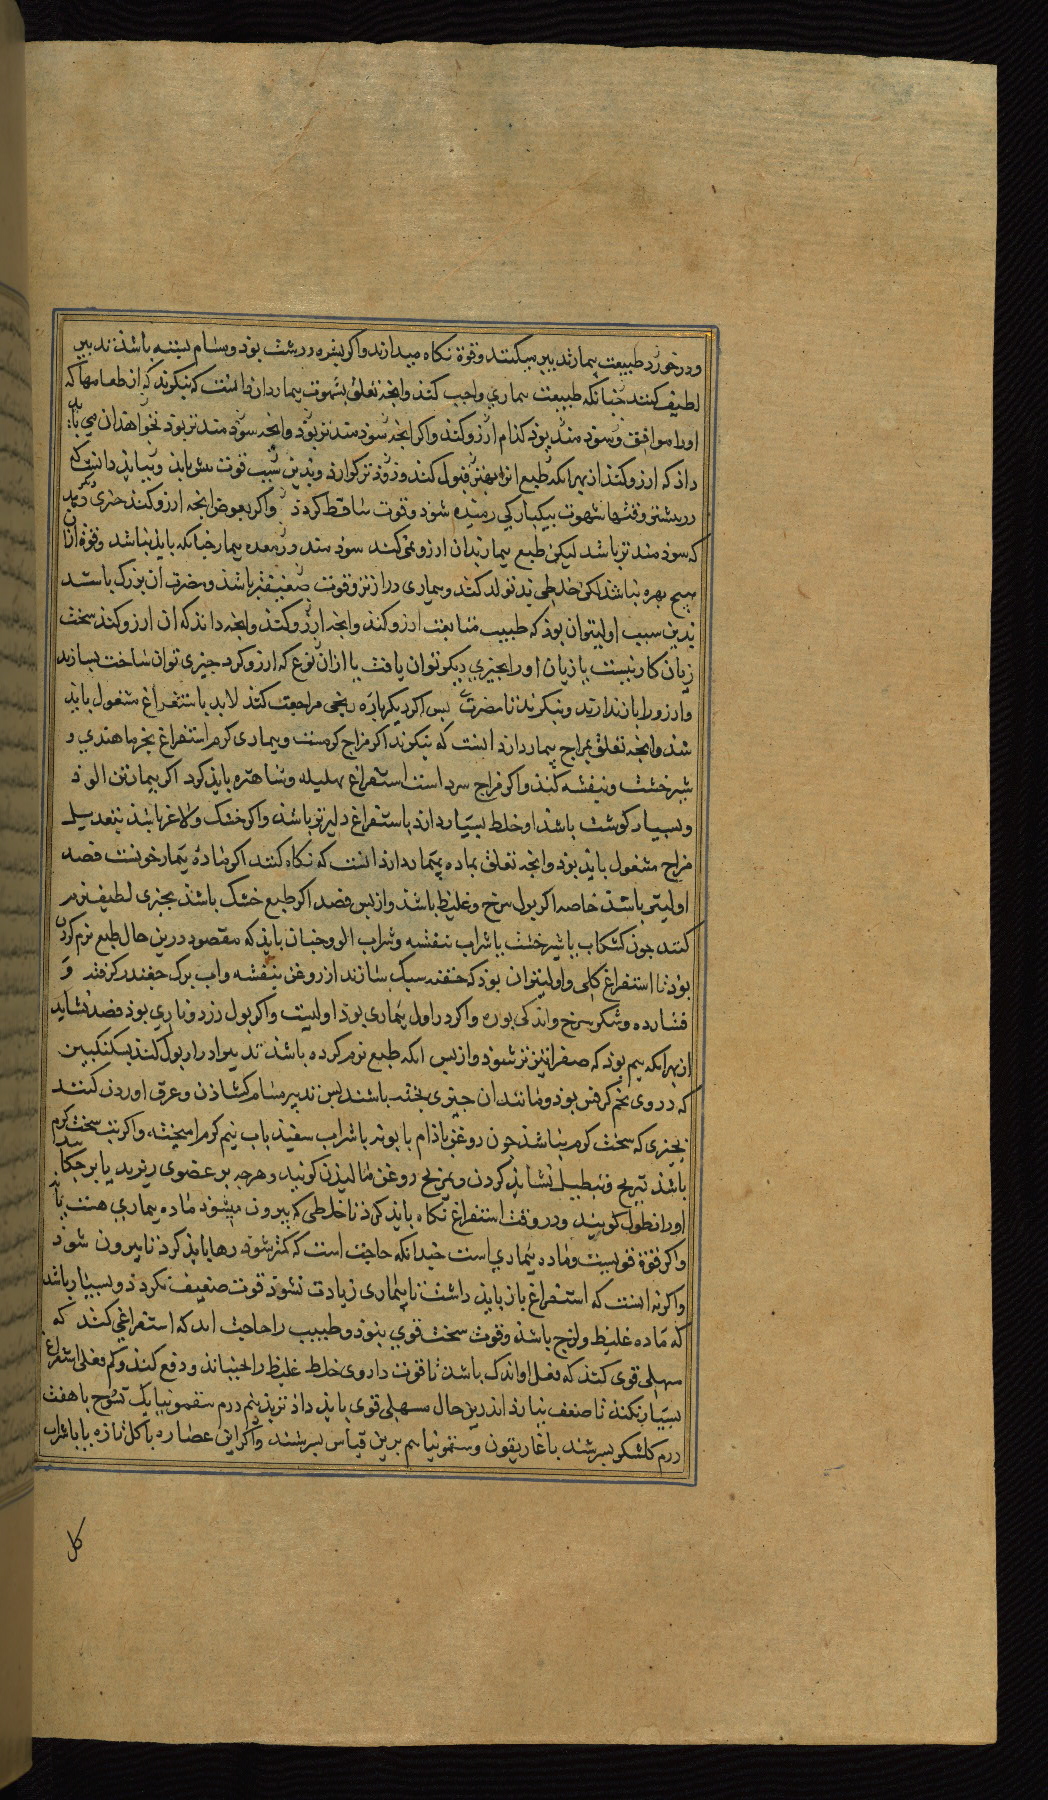 ودرخورد طبیعت بیمار تدبیر میکنند وقوة نکاه میدارند واکر بشره درشت بوذ ومسام بسته باشد تدبیر
لطیف کنند جنانکه طبیعت بیماری واجب کند وانجه تعلق بشهوت بیمار دارد انست که بنکرند که ان طعامها که
اورا موافق وسودمند بوذ کذام ارزو کند واکر انجه سودمندتر بوذ وانجه سودمندتر بوذ نخواهد ان می باید
داذ که ارزو کند از بهر انکه طبع انرا بهتر قبول کند وزوذتر کوارد وبدین سبب قوت بیش یابد وبباید دانست که
در بیشتر وقتها شهوت بیکبارکی رمیده شوذ وقوت ساقط کردد واکر بعوض انجه ارزو کند جیزی دیکر دهند
که سودمندتر باشد لیکن طبع بیمار بدان ارزو نمی کند سودمند ودر معده بیمار جنانکه باید نباشد وقوة را از ان
هیچ بهره نباشد لکن خلطی بد تولد کند وبیماری درازتر وقوت ضعیفتر باشد ومضرت ان بزرک باشد
بدین سبب اولیتر ان بوذ که طبیب متابعت ارزو کند وانجه ارزو کند وانجه داند که ان ارزو کند سخت
زیان کار نیست یا زیان اورا بجیزی دیکر توان یافت یا از ان نوع که ارزو کرد جیزی توان ساخت بسازند
وارزو را باز ندارند وبنکرند تا مضرت بس اکر دیکر باره رنجی مراجعت کند لابد باستفراغ مشغول باید
شد وانجه تعلق بمزاج بیمار دارد انست که بنکرند اکر مزاج کرمست وبیماری کرم استفراغ بخرما هندی و
شیرخشت وبنفشه کنند واکر مزاج سرد است استفراغ بهلیله وشاهتره باید کرد اکر بیمار تن الوذ
وبسیار کوشت باشد او خلط بسیار دارد باستفراغ دلیرتر باشد واکر خشک ولاغر باشد بتعدیل
مزاج مشغول باید بوذ وانجه تعلق بماده بیمار دارد انست که نکاه کنند اکر ماده بیمار خونست فصد
اولیتر باشد خاصه اکر بول سرخ وغلیظ باشد واز بس فصد اکر طبع خشک باشد بجیزی لطیف نرم
کنند جون کشکاب با شیرخشت یا شراب بنفشه وشراب الو وجنان باید که مقصود درین حال طبع نرم کردن
بوذ نا استفراغ کلی واولیتر ان بوذ که حقنه سبک سازند از روغن بنفشه واب برک جغندر کرفته و
فشارده وشکر سرخ واندکی بوره واکر در اول بیماری بوذ اولیست واکر بول زرد وناری بوذ فصد نشاید
از بهر انکه بیم بوذ که صفرا تیزتر شوذ واز بس انکه طبع نرم کرده باشد تدبیر ادرار بول کنند بسکنکبین
که در وی تخم کرفس بوذ ومانند ان جیزی بخته باشند بس تدبیر مسام کشاذن وعرق اوردن کنند
بجیزی که سخت کرم نباشد جون روغن باذام با بونه با شراب سفید باب نیم کرم امیخته واکر تب سخت کرم
باشد تمریخ وتنطیل نشاید کردن وتمریخ روغن مالیدن کویند وهرجه بر عضوی ریزند یا برجکانند
اورا نطول کویند ودر وقت استفراغ نکاه باید کرد تا خلطی که بیرون میشود ماده بیماری هست یا نه
واکر قوة قویست وماده بیماری است جندانکه حاجت است که کمتر شوذ رها باید کرد تا بیرون شوذ
واکر نه انست که استفراغ باز باید داشت تا بیماری زیادت نشود قوت ضعیف نکردد وبسیار باشد
که ماده غلیظ ولزج باشد وقوت سخت قوی نبوذ وطبیب را حاجت اید که استفراغی کند که
مسهلی قوی کند که فعل او اندک باشد تا قوت داروی خلط غلیظ را بجنباند ودفع کند وکم فعلی استفراغ
بسیار نکند تا ضعف نیارد اندرین حال مسهلی قوی باید داذ تربذ نیم درم سقمونیا یک تسوج با هفت
درم کلشکر بسرشند یا غاریقون وسقمونیا هم برین قیاس بسرشند واکر این عصاره با کل تازه یا با شراب
کل